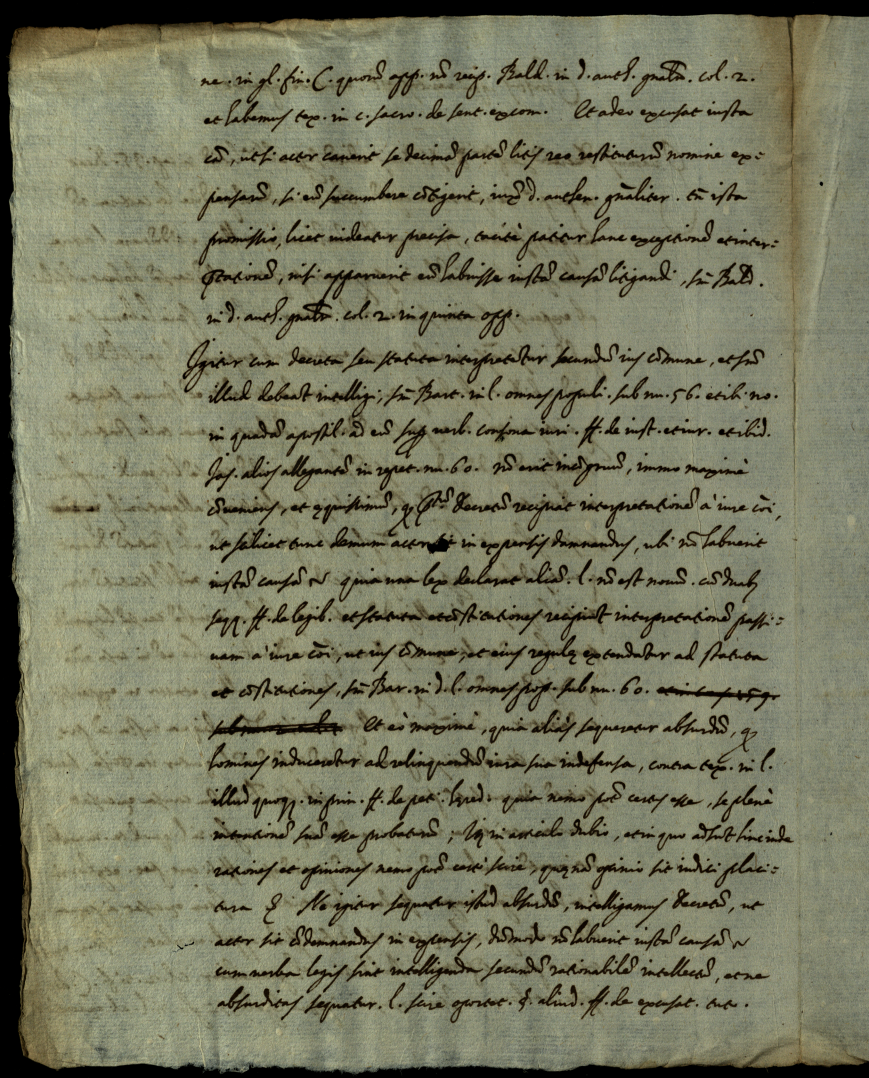 ne. in gl. fin. C. quorū app. nō recip. Bald. in d. auth. gnãlr. col. 2.
et habemus tex. in c. sacro. de sent. excom. Et adeo excusat iusta
cā, ut si actor cauerit se decimā partē litis reo restituturū nomine ex=
pensarū, si eū succumbere cōtigerit, iuxᵃ d. authen. gñaliter. tñ ista
promissio, licet uideatur precisa, tacitè patitur hanc exceptionē et inter=
p̃tationē, nisi apparuerit eū habuisse iustā causā litigandi, sm̃ Bald.
in d. auth. gnãlr. col. 2. in quinta opp.
Igitur cum decreta seu statuta interpretētur secundū ius cōmune, et sm̃
illud debeāt intelligi, sm̃ Bart. in l. omnes populi. sub nu. 56. et ibi no.
in quadā apostil. ad eū sup verb. consona iuri. ff. de iust. et iur. et ibid.
Jas. alios allegantē in repet. nu. 60. nō erit incōgruū, immo maximè
cōueniens, et ęquissimū, q̃ p̃tū decretū recipiat interpretationē à iure cōi,
ut scilicet tunc demum actor sit in expensis damnandus, ubi nō habuerit
iustā causā ~ quia una lex declarat aliā. l. nō est nouū. cū duab;
seqq. ff. de legib. et statuta et cōstitutiones recipiūt interpretationē passi=
uam à iure cōi, ut ius cōmune, et eius regulę extendātur ad statuta
et cōstitutiones, sm̃ Bar. in d. l. omnes pop. sub nu. 60.
Et eò maximè, quia aliàs sequeretur absurdū, q̃
homines inducerētur ad relinquendū iura sua indefensa, contra tex. in l.
illud quoq;. in prin. ff. de pet. hęred. quia nemo pōt certus esse, se plenè
intentionē suā esse probaturū; Itē in articulo dubio, et in quo adsūt hinc inde
rationes et opiniones nemo pōt certò scire, quęnā opinio sit iudici placi=
tura Ne igitur sequatur istud absurdū, intelligamus decretū, ut
actor sit cōdemnandus in expensis, dūmodo nō habuerit iustā causā ~
cum uerba legis sint intelligenda secundū rationabilē intellectū, et ne
absurditas sequatur. l. scire oportet. §. aliud. ff. de excusat. tut.